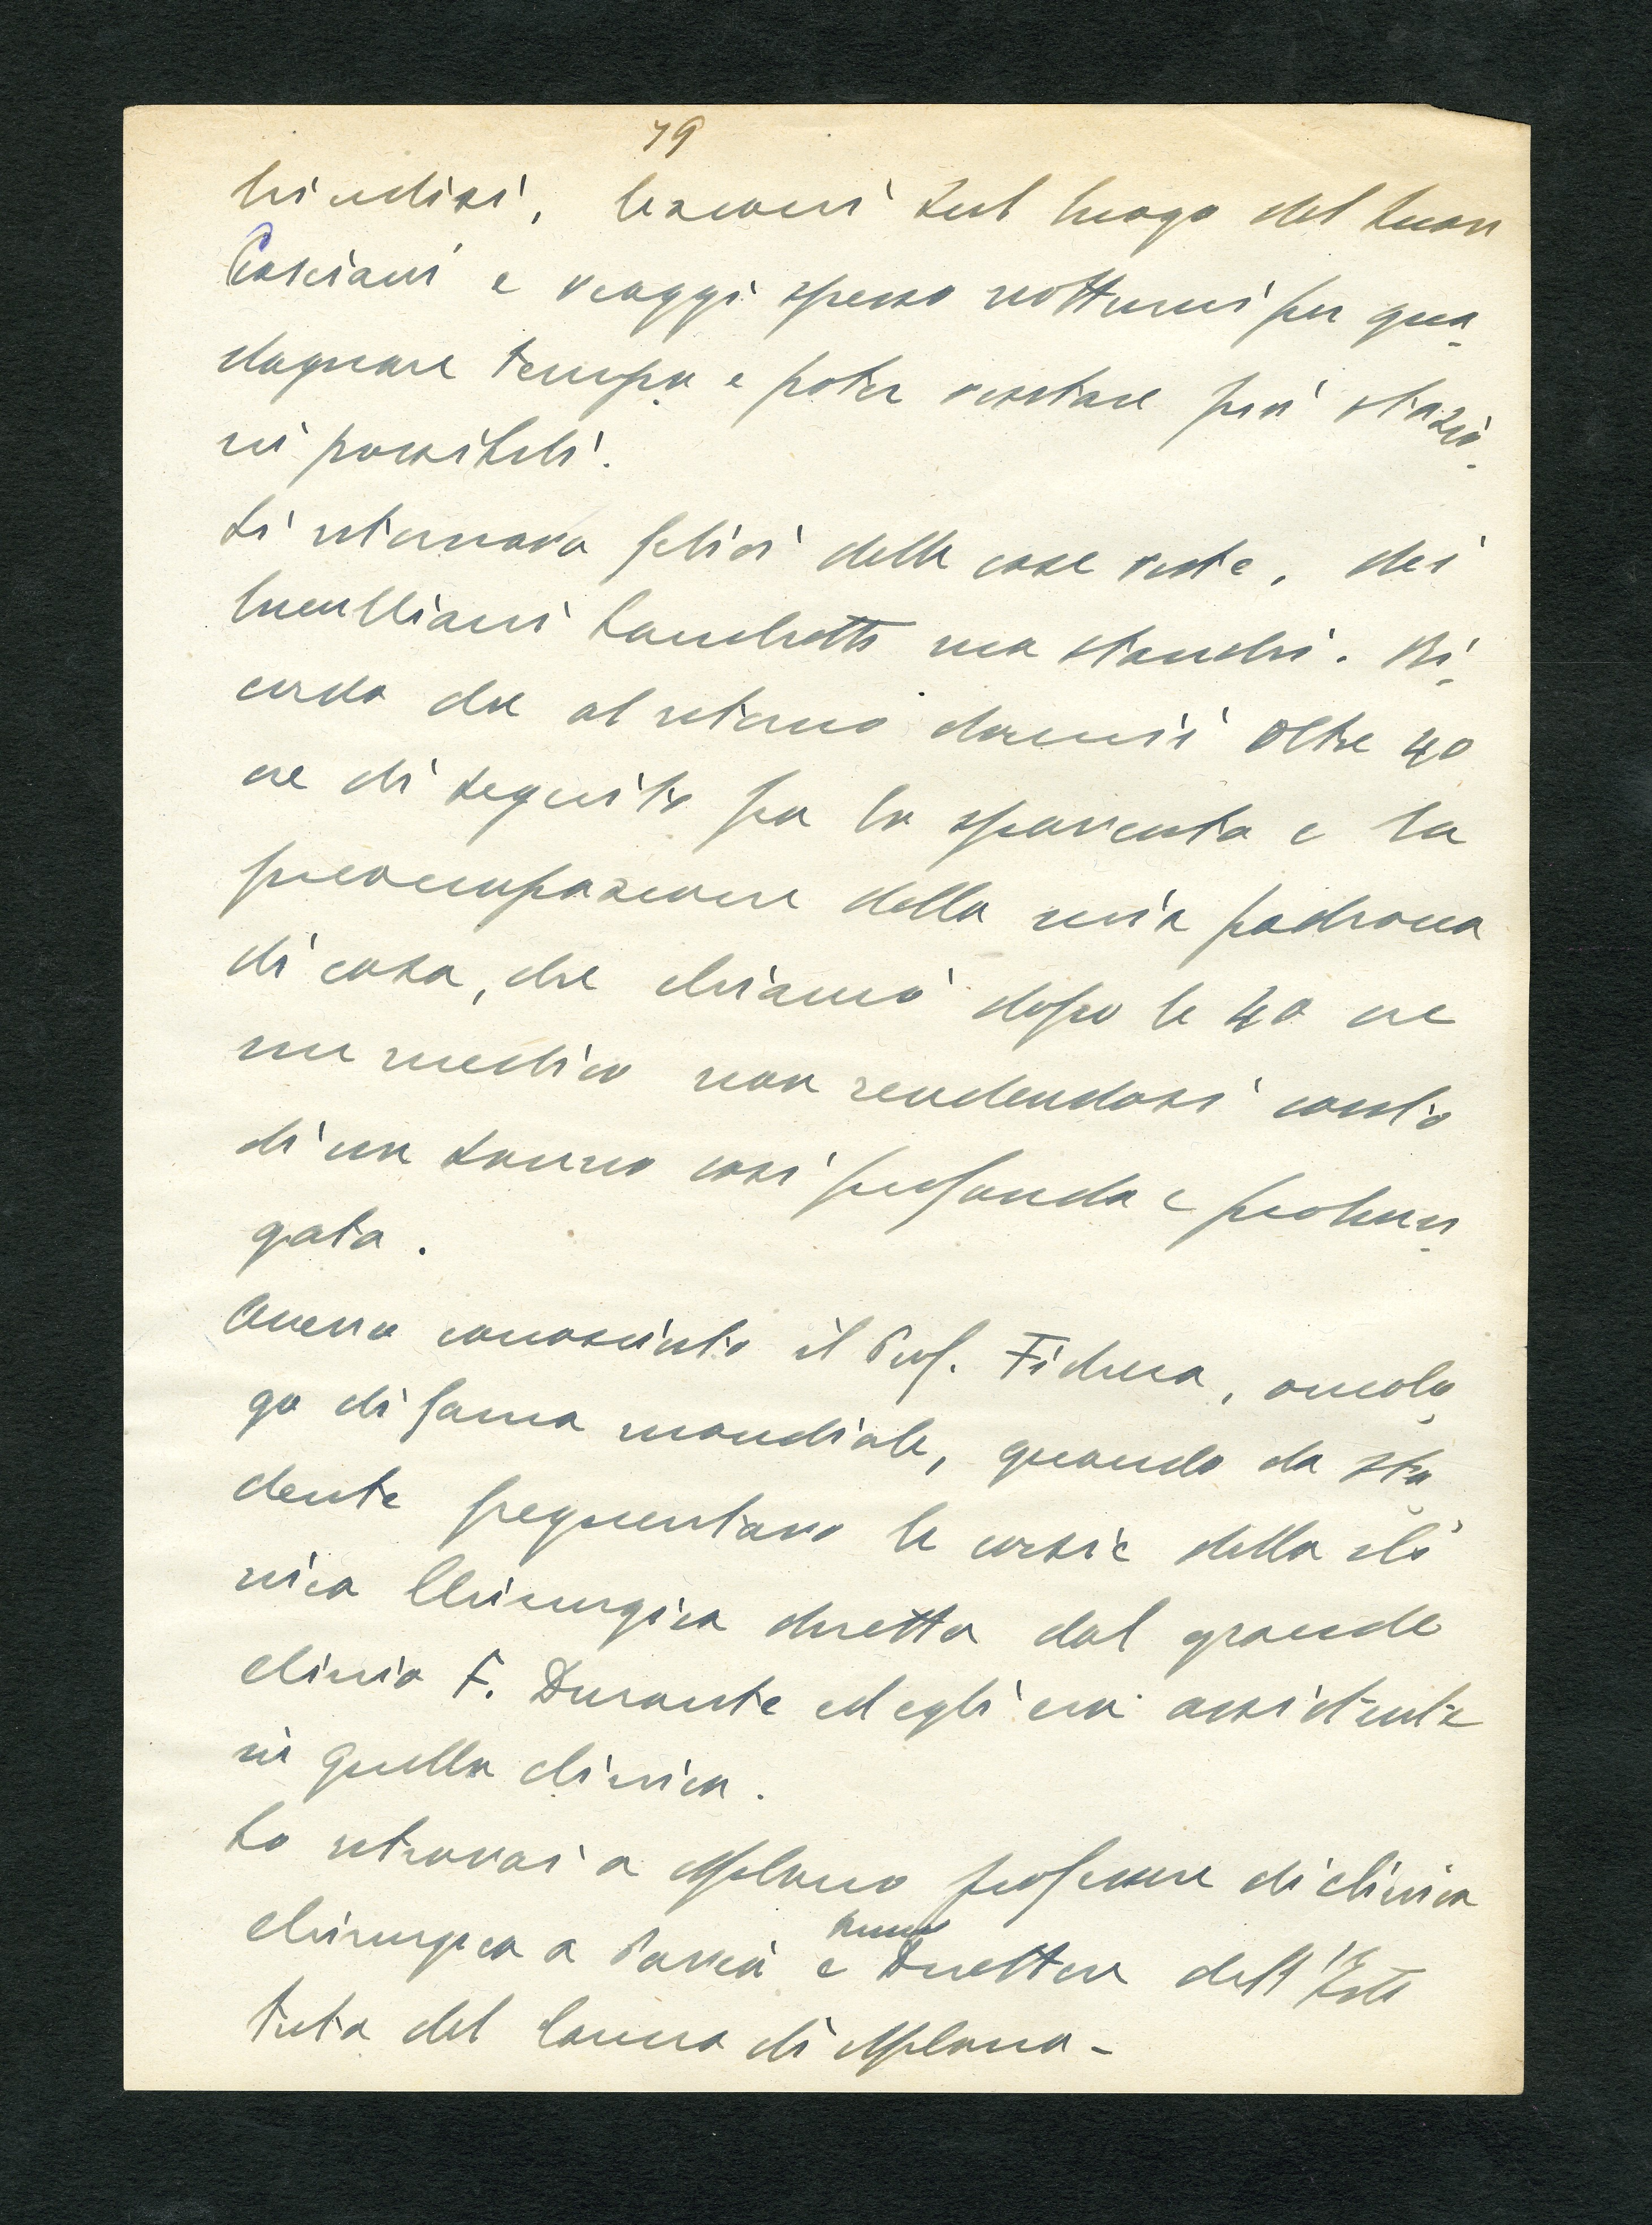 79
brindisi, lezioni sul luogo del buon
Casciani e viaggi spesso notturni per gua
dagnare tempo e poter visitare più stazio
ni possibili.
Si ritornava felici delle cose viste, dei
luculliani banchetti ma stanchi. Ri
cordo che al ritorno dormii oltre 40
ore di seguito fra lo spavento e la
preoccupazione della mia padrona
di casa, che chiamò dopo le 40 ore
un medico non rendendosi conto
di un sonno così profondo e prolun
gato.
Avevo conosciuto il Prof. Fichera, oncolo
go di fama mondiale, quando da stu
dente frequentavo le corsie della cli
nica Chirurgica diretta dal grande
clinico F. Durante ed egli era assistente
in quella clinica.
Lo ritrovai a Milano professore di clinica
chirurgica a Pavia e Direttore dell'Isti
tuto del Cancro di Milano -